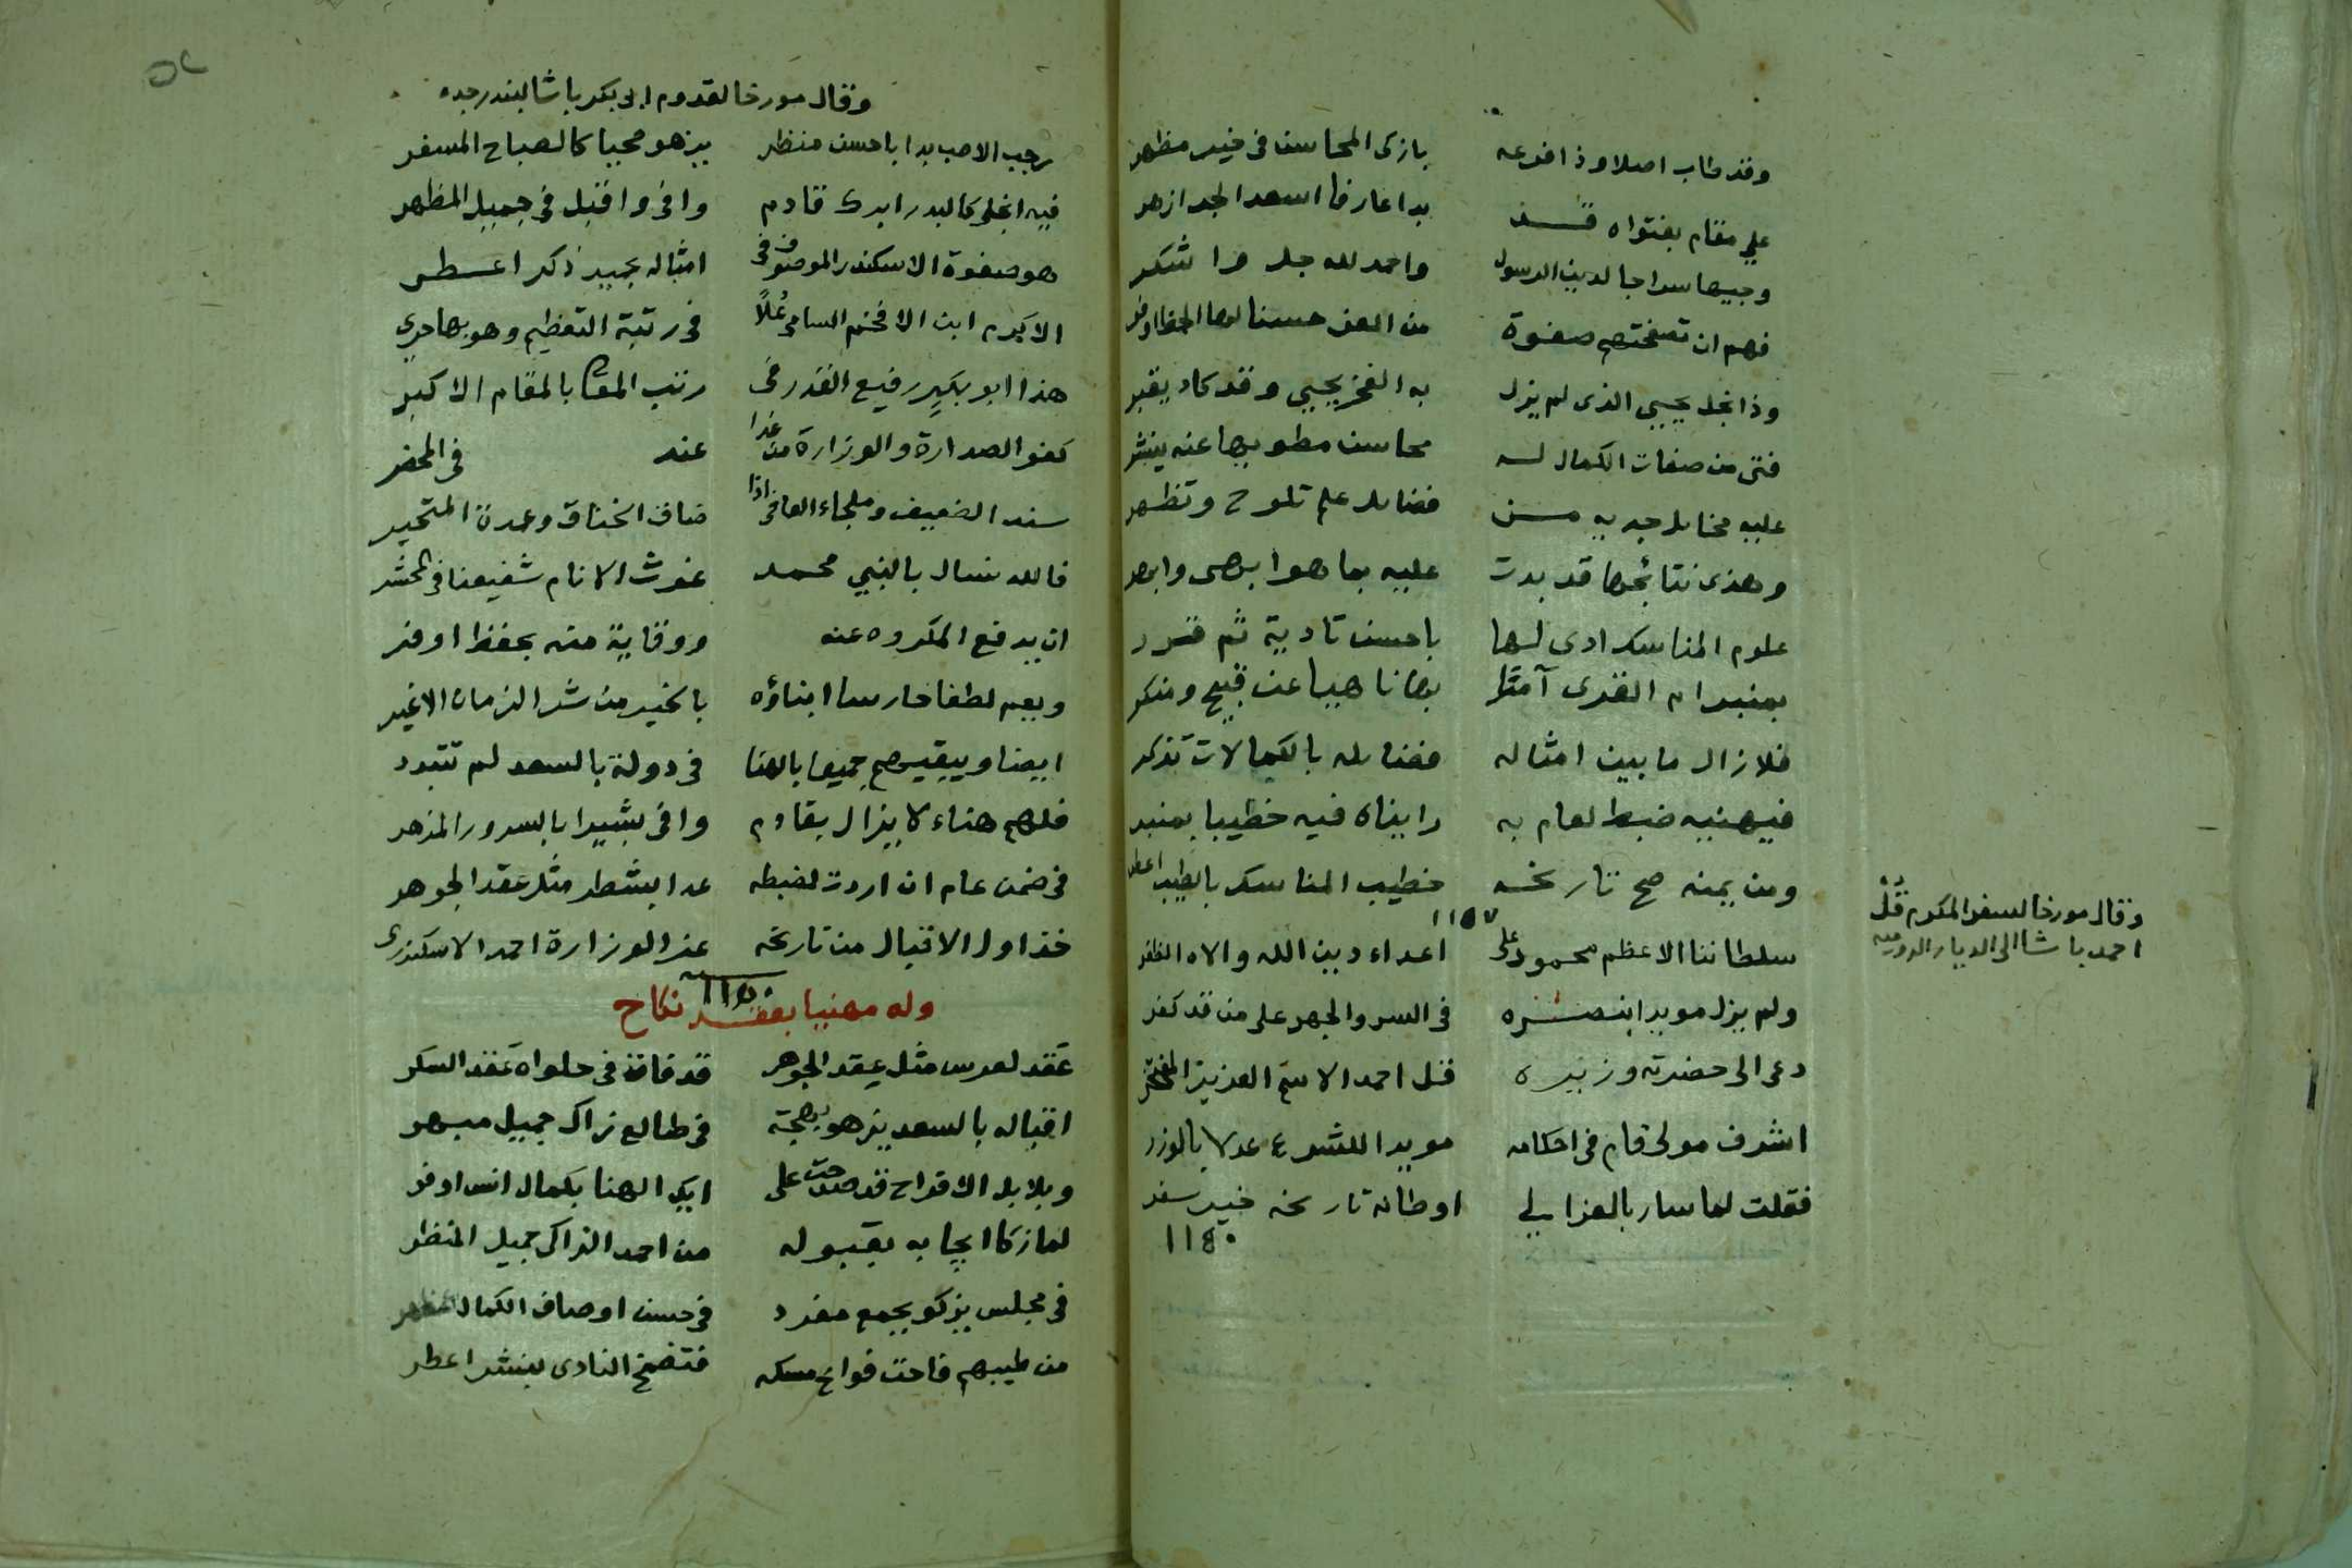 وقد طاب اصلا وذا فرعه بازكى المحاسن فى خير مظهر
على مقام بفتواه بدا عارفا اسعد الجد ازهر
وجيها سراجا لدين الرسول واحمد لله جل واشكر
فهم ان تصفحتهم صفوة من العز حسنا لها الحظ اوفر
وذا نجل يحيى الذى لم يزل به الفخر يحيى وقد كاد يقبر
فتى من صفات الكمال له محاسن مطويها عنه ينشر
عليه مخايل جديه من فضايل علم تلوح وتظهر
وهذى نتائجها قد بدت عليه بما هو ابهى وابهر
علوم المناسك ادى لها باحسن تادية ثم قرر
بمنبر ام القرى آمرا بها ناهيا عن قبيح ومنكر
فلا زال ما بين امثاله فضايله بالكمالات تذكر
فيهنيه ضبط لعام به رايناه فيه خطيبا بمنبر
ومن يمنه صح تاريخه خطيب المناسك بالطيب اعطر
١١٥٧
وقال مورخا لسفر المكرم
احمد باشا الى الديار الرومية
سلطاننا الاعظم محمود على اعداء دين الله والاه الظفر
ولم يزل مويدا بنصره فى السر والجهر على من قد كفر
دعى الى حضرته وزيره قل احمد الاسم العزيز المفتخر
اشرف مولى قام فى احكامه مويدا للشرع عدلا بالوزر
فقلت لما سار بالعز الى اوطانه تاريخه خير سفر
١١٤٠
وقال مورخا لقدوم ابى بكر باشا لبندر جده
رجب الاصب بدا باحسن منظر يزهو محيا كالصباح المسفر
فيه انجلى كالبدر ابرك قادم وافى واقبل فى جميل المظهر
هو صفوة الاسكندر الموصوف فى امثاله بجيد ذكر اعطر
الاكرم ابن الافخم السامى عُلاً فى رتبة التعظيم وهو بها حرى
هذا ابو بكرٍ رفيع القدر فى رتب المقام بالمقام الاكبر
كفو الصدارة والوزارة من غدا عند فى المحضر
سند الضعيف وملجاء العافى اذا ضاق الخناق وعمدة المتحير
فالله نسال بالنبى محمد غوث الانام شفيعنا فى المحشر
ان يدفع المكروه عنه ووقاية منه بحفظ اوفر
ويعم لطفا حارسا ابناؤه بالخير من شر الزمان الاغبر
ايضا ويبقيهم جميعا بالهنا فى دولة بالسعد لم تتبرد
فلهم هناء لا يزال بقادم وافى بشيرا بالسرور المزهر
فى ضمن عام ان اردت لضبطه عد ابشطر مثل عقد الجوهر
خذ اول الاقبال من تاريخه عز الوزارة احمد الاسكندرى
١١٥٠
وله مهنيا بعقد نكاح
عقد لعرس مثل عقد الجوهر قد فاق فى حلواه عقد السكر
اقباله بالسعد يزهو بهجة فى طالع زاك جميل مبهر
وبلابل الافراح قد صدحت على ايك الهنا بكمال انس اوفر
لما زكا ايجابه بقبوله من احمد الزاكى جميل المنظر
فى مجلس يزكو بجمع مفرد فى حسن اوصاف الكمال
من طيبهم فاحت فوايح مسكه فتضمخ النادى بنشر اعطر